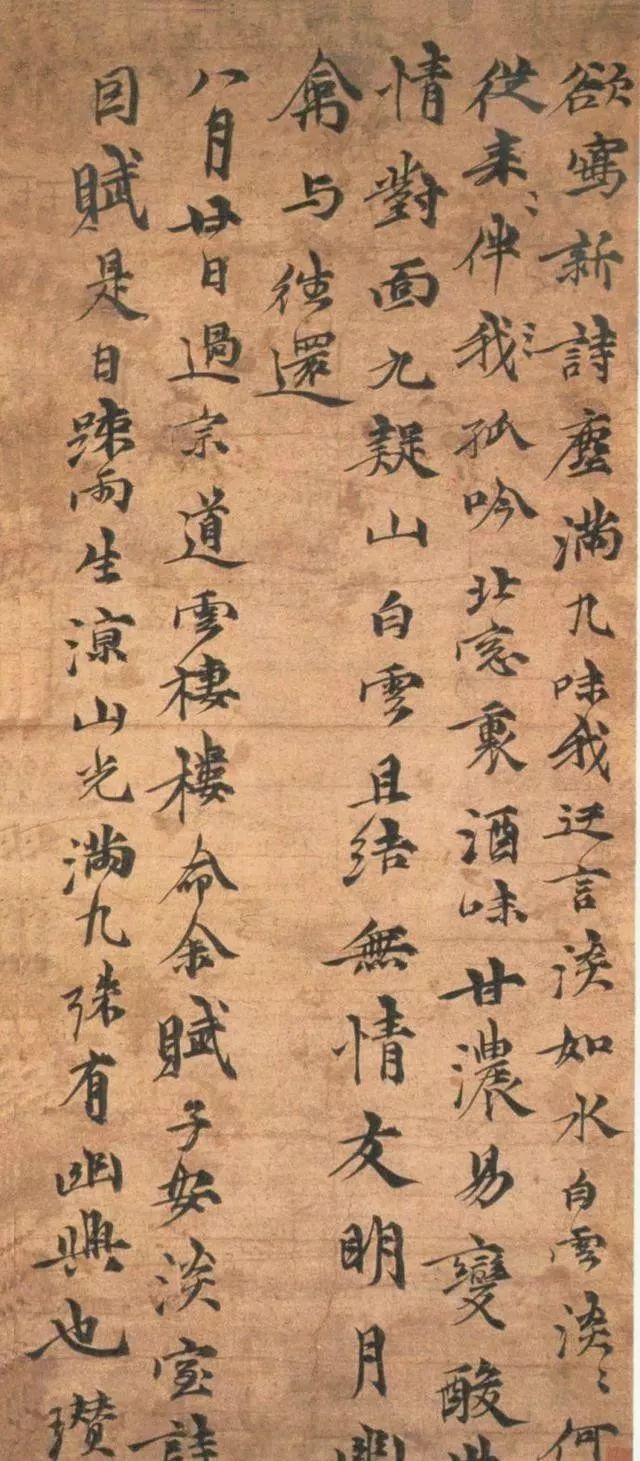 欲寫新詩塵滿几味我迂言淡如水白雲淡〻何
從来〻伴我孤吟北窓裏酒味甘濃易變酸世
情對面九疑山白雲且結無情友明月幽
禽与往還
八月廿日過宗道雲棲樓命余賦子安淡室詩
因賦是日疎雨生涼山光滿几殊有幽興也瓚